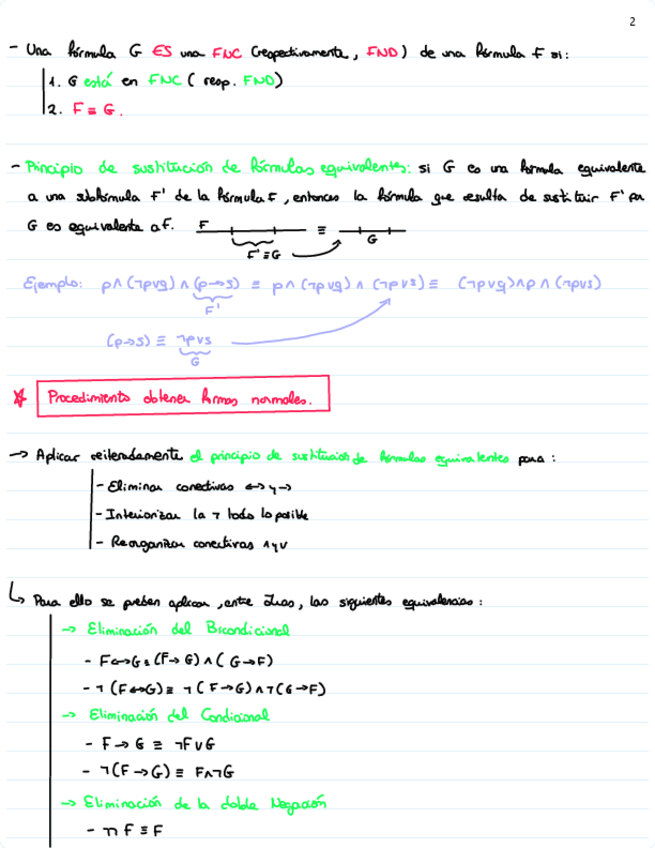 2
- Una fórmula G ES una FNC (respectivamente, FND) de una fórmula F si:
1. G está en FNC (resp. FND)
2. F ≡ G.
- Principio de sustitución de fórmulas equivalentes: si G es una fórmula equivalente
a una subfórmula F' de la fórmula F, entonces la fórmula que resulta de sustituir F' por
G es equivalente a F. F ≡ G
F' ≡ G
Ejemplo: p∧(¬p∨q)∧(p→s) ≡ p∧(¬p∨q)∧(¬p∨s) ≡ (¬p∨q)∧p∧(¬p∨s)
F'
(p→s) ≡ ¬p∨s
G
Procedimiento obtener formas normales.
→ Aplicar reiteradamente el principio de sustitución de fórmulas equivalentes para:
- Eliminar conectivas ↔ y →
- Interiorizar la ¬ todo lo posible
- Reorganizar conectivas ∧ y ∨
↳ Para ello se pueden aplicar, entre otras, las siguientes equivalencias:
→ Eliminación del Bicondicional
- F↔G ≡ (F→G)∧(G→F)
- ¬(F↔G) ≡ ¬(F→G)∧¬(G→F)
→ Eliminación del Condicional
- F→G ≡ ¬F∨G
- ¬(F→G) ≡ F∧¬G
→ Eliminación de la doble Negación
- ¬¬F ≡ F